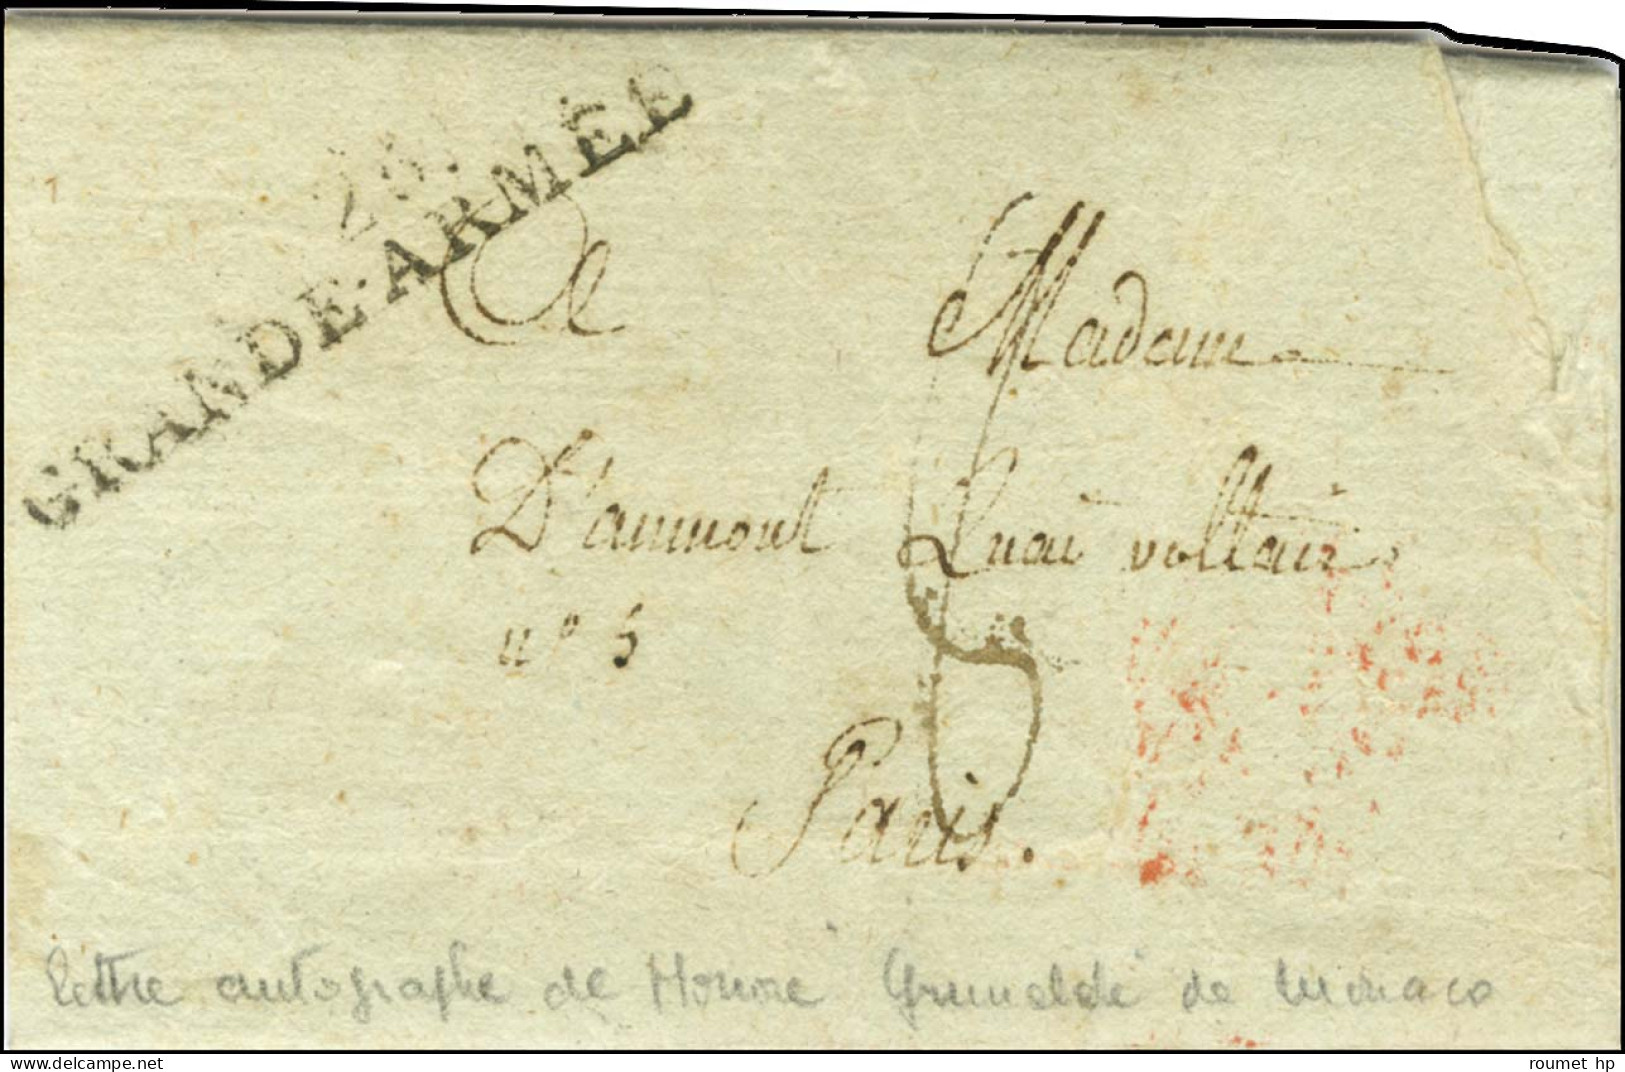 GRANDE-ARMÉE
A Madame
D'aumont Quai voltaire
n° 5
Paris.
lettre autographe de Honoré Grimaldi de Monaco
www.delcampe.net
roumet_hp